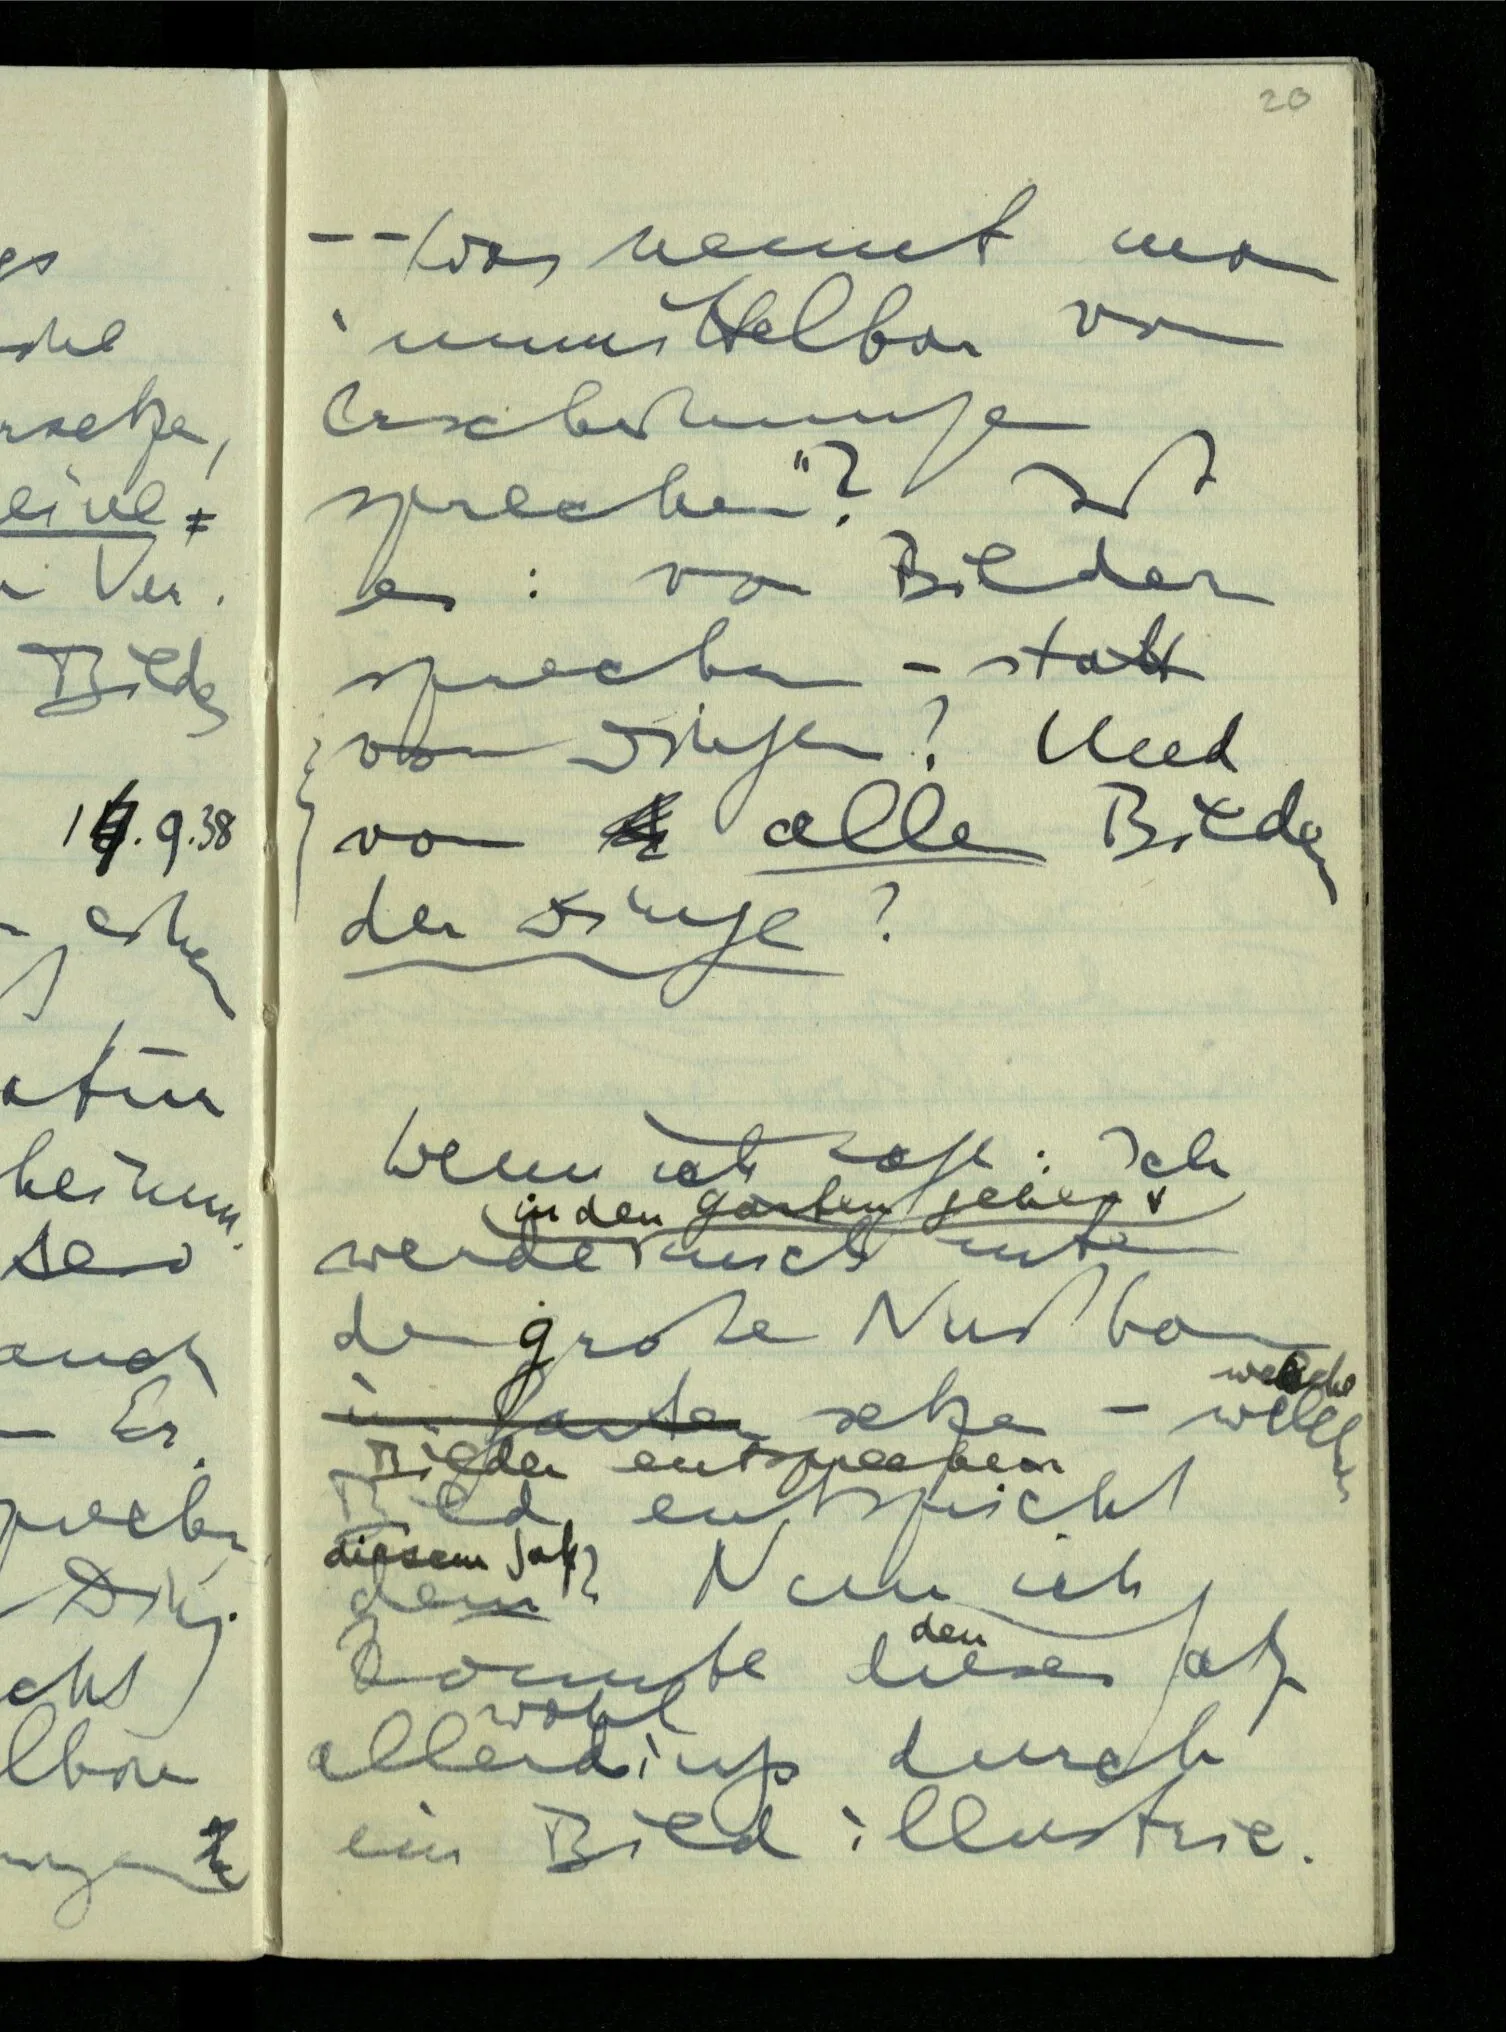 gs
rsetze,
eine =
Ver.
Bilder
17.9.38
atur
heinun.
auch
Er.
sprechen
Ding.
lbare
20
-- Was nennt man
"unmittelbar von
Erscheinungen
sprechen"? Ist
es: von Bildern
sprechen - statt
von Dingen? Und
von allen Bildern
der Dinge?
Wenn ich sage: Ich
in den Garten gehen &
werde mich unter
den großen Nußbaum
im Garten setzen - welches
welche
Bilder entsprechen
Bild entspricht
diesem Satz?
dem? Nun ich
den
könnte diesen Satz
wohl
allerdings durch
ein Bild illustrie.